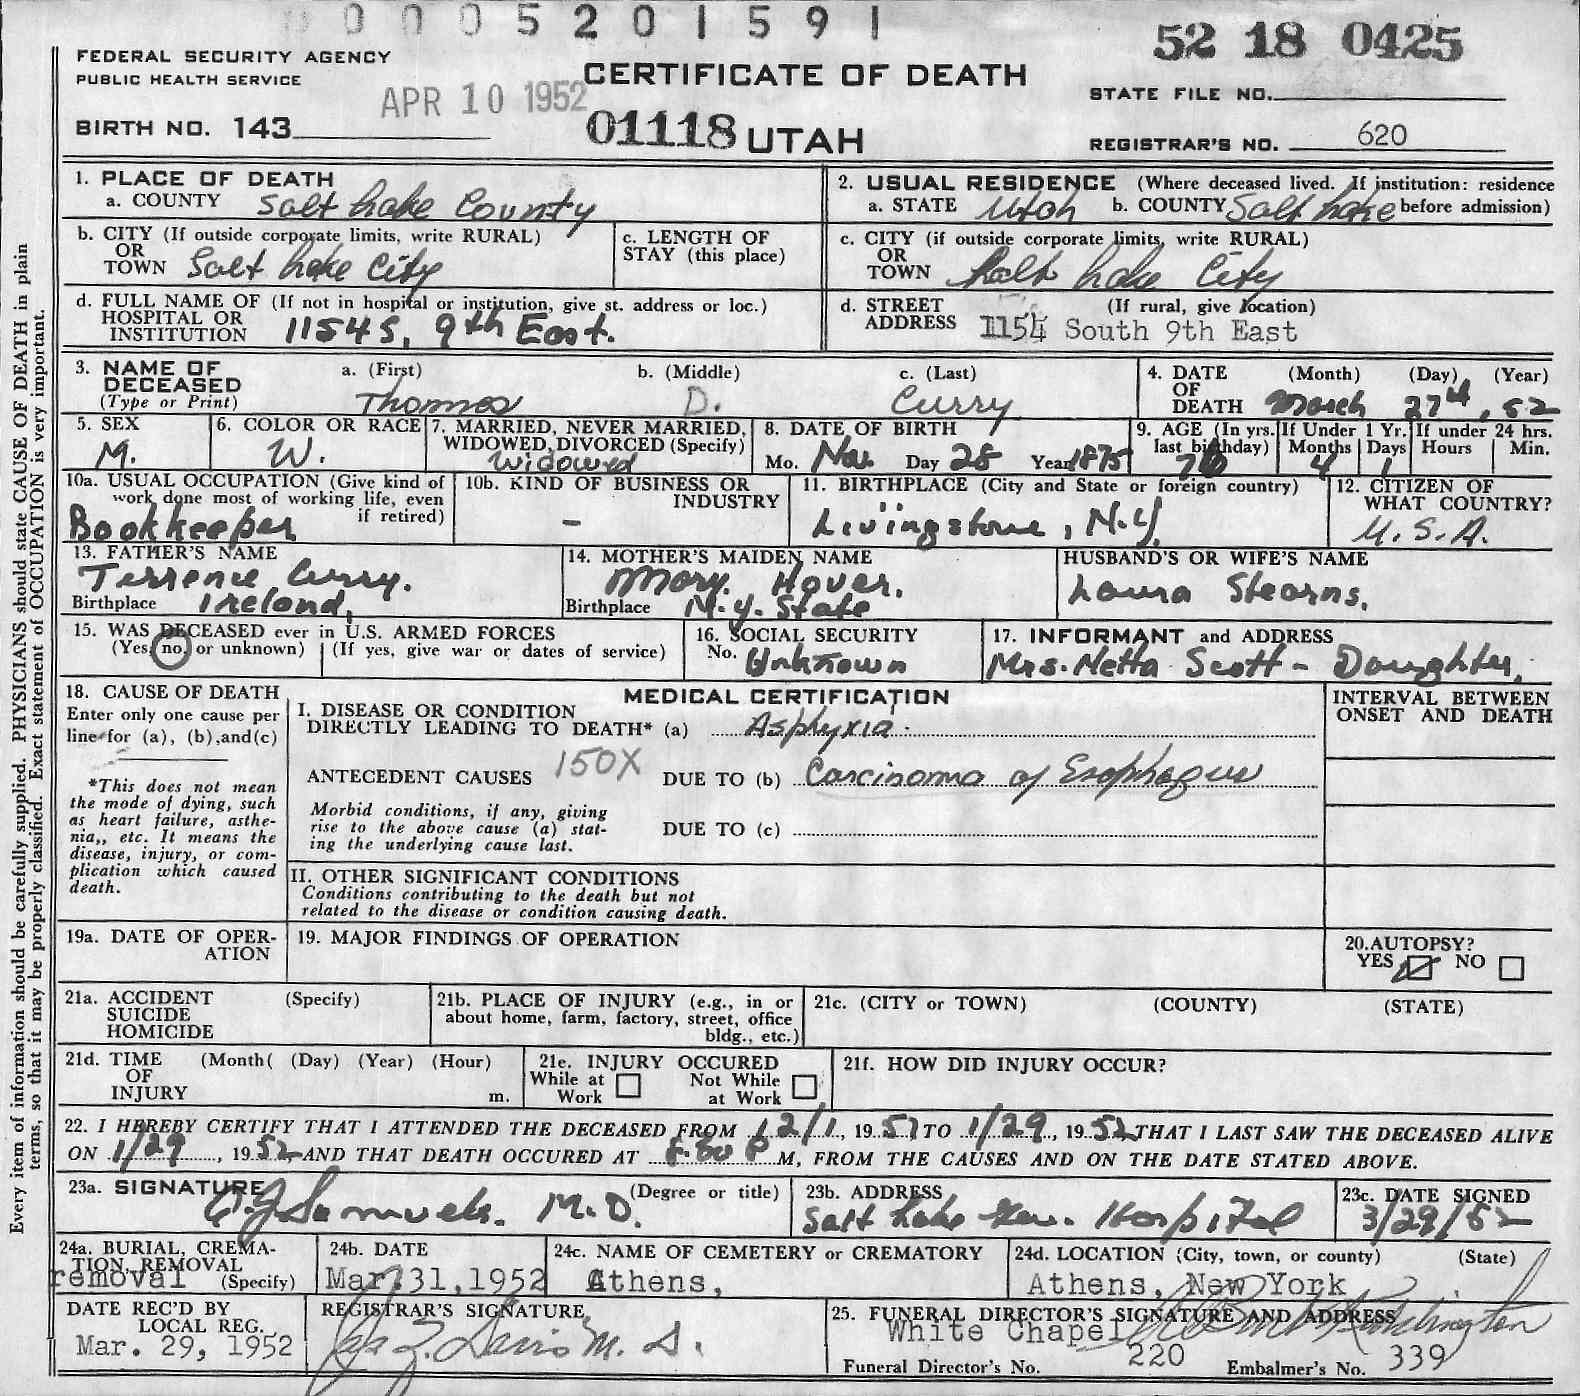 0005201591
52 18 0425
FEDERAL SECURITY AGENCY
PUBLIC HEALTH SERVICE
CERTIFICATE OF DEATH
STATE FILE NO.
APR 10 1952
BIRTH NO. 143
01118 UTAH
REGISTRAR'S NO. 620
Every item of information should be carefully supplied. PHYSICIANS should state CAUSE OF DEATH in plain
terms, so that it may be properly classified. Exact statement of OCCUPATION is very important.
1. PLACE OF DEATH
a. COUNTY Salt Lake County
2. USUAL RESIDENCE (Where deceased lived. If institution: residence
a. STATE Utah b. COUNTY Salt Lake before admission)
b. CITY (If outside corporate limits, write RURAL)
OR
TOWN Salt Lake City
c. LENGTH OF
STAY (this place)
c. CITY (if outside corporate limits, write RURAL)
OR
TOWN Salt Lake City
d. FULL NAME OF (If not in hospital or institution, give st. address or loc.)
HOSPITAL OR
INSTITUTION 1154 S. 9th East.
d. STREET (If rural, give location)
ADDRESS 1154 South 9th East
3. NAME OF a. (First) b. (Middle) c. (Last)
DECEASED
(Type or Print) Thomas D. Curry
4. DATE (Month) (Day) (Year)
OF
DEATH March 27th, 52
5. SEX
M.
6. COLOR OR RACE
W.
7. MARRIED, NEVER MARRIED,
WIDOWED, DIVORCED (Specify)
Widowed
8. DATE OF BIRTH
Mo. Nov. Day 28 Year 1875
9. AGE (In yrs. If Under 1 Yr. If under 24 hrs.
last birthday) Months Days Hours Min.
76 4 1
10a. USUAL OCCUPATION (Give kind of
work done most of working life, even
if retired)
Bookkeeper
10b. KIND OF BUSINESS OR
INDUSTRY
-
11. BIRTHPLACE (City and State or foreign country)
Livingstone, N.Y.
12. CITIZEN OF
WHAT COUNTRY?
U.S.A.
13. FATHER'S NAME
Terrence Curry.
Birthplace Ireland,
14. MOTHER'S MAIDEN NAME
Mary Hover.
Birthplace N.Y. State
HUSBAND'S OR WIFE'S NAME
Laura Stearns.
15. WAS DECEASED ever in U.S. ARMED FORCES
(Yes, no, or unknown) (If yes, give war or dates of service)
16. SOCIAL SECURITY
No. Unknown
17. INFORMANT and ADDRESS
Mrs. Netta Scott - Daughter.
18. CAUSE OF DEATH
Enter only one cause per
line for (a), (b), and (c)
*This does not mean
the mode of dying, such
as heart failure, asthe-
nia,, etc. It means the
disease, injury, or com-
plication which caused
death.
MEDICAL CERTIFICATION
I. DISEASE OR CONDITION
DIRECTLY LEADING TO DEATH* (a) Asphyxia.
ANTECEDENT CAUSES 150X DUE TO (b) Carcinoma of Esophagus
Morbid conditions, if any, giving
rise to the above cause (a) stat-
ing the underlying cause last.
DUE TO (c)
II. OTHER SIGNIFICANT CONDITIONS
Conditions contributing to the death but not
related to the disease or condition causing death.
INTERVAL BETWEEN
ONSET AND DEATH
19a. DATE OF OPER-
ATION
19. MAJOR FINDINGS OF OPERATION
20. AUTOPSY?
YES NO
21a. ACCIDENT (Specify)
SUICIDE
HOMICIDE
21b. PLACE OF INJURY (e.g., in or
about home, farm, factory, street, office
bldg., etc.)
21c. (CITY or TOWN) (COUNTY) (STATE)
21d. TIME (Month( (Day) (Year) (Hour)
OF
INJURY m.
21e. INJURY OCCURED
While at Work Not While at Work
21f. HOW DID INJURY OCCUR?
22. I HEREBY CERTIFY THAT I ATTENDED THE DECEASED FROM 12/1, 1951 TO 1/29, 1952 THAT I LAST SAW THE DECEASED ALIVE
ON 1/29, 1952, AND THAT DEATH OCCURED AT P M, FROM THE CAUSES AND ON THE DATE STATED ABOVE.
23a. SIGNATURE (Degree or title)
Samuels. M.D.
23b. ADDRESS
Salt Lake Gen. Hospital
23c. DATE SIGNED
3/29/52
24a. BURIAL, CREMA-
TION, REMOVAL
removal (Specify)
24b. DATE
Mar. 31, 1952
24c. NAME OF CEMETERY or CREMATORY
Athens,
24d. LOCATION (City, town, or county) (State)
Athens, New York
DATE REC'D BY
LOCAL REG.
Mar. 29, 1952
REGISTRAR'S SIGNATURE
M.D.
25. FUNERAL DIRECTOR'S SIGNATURE AND ADDRESS
White Chapel
Funeral Director's No. 220 Embalmer's No. 339